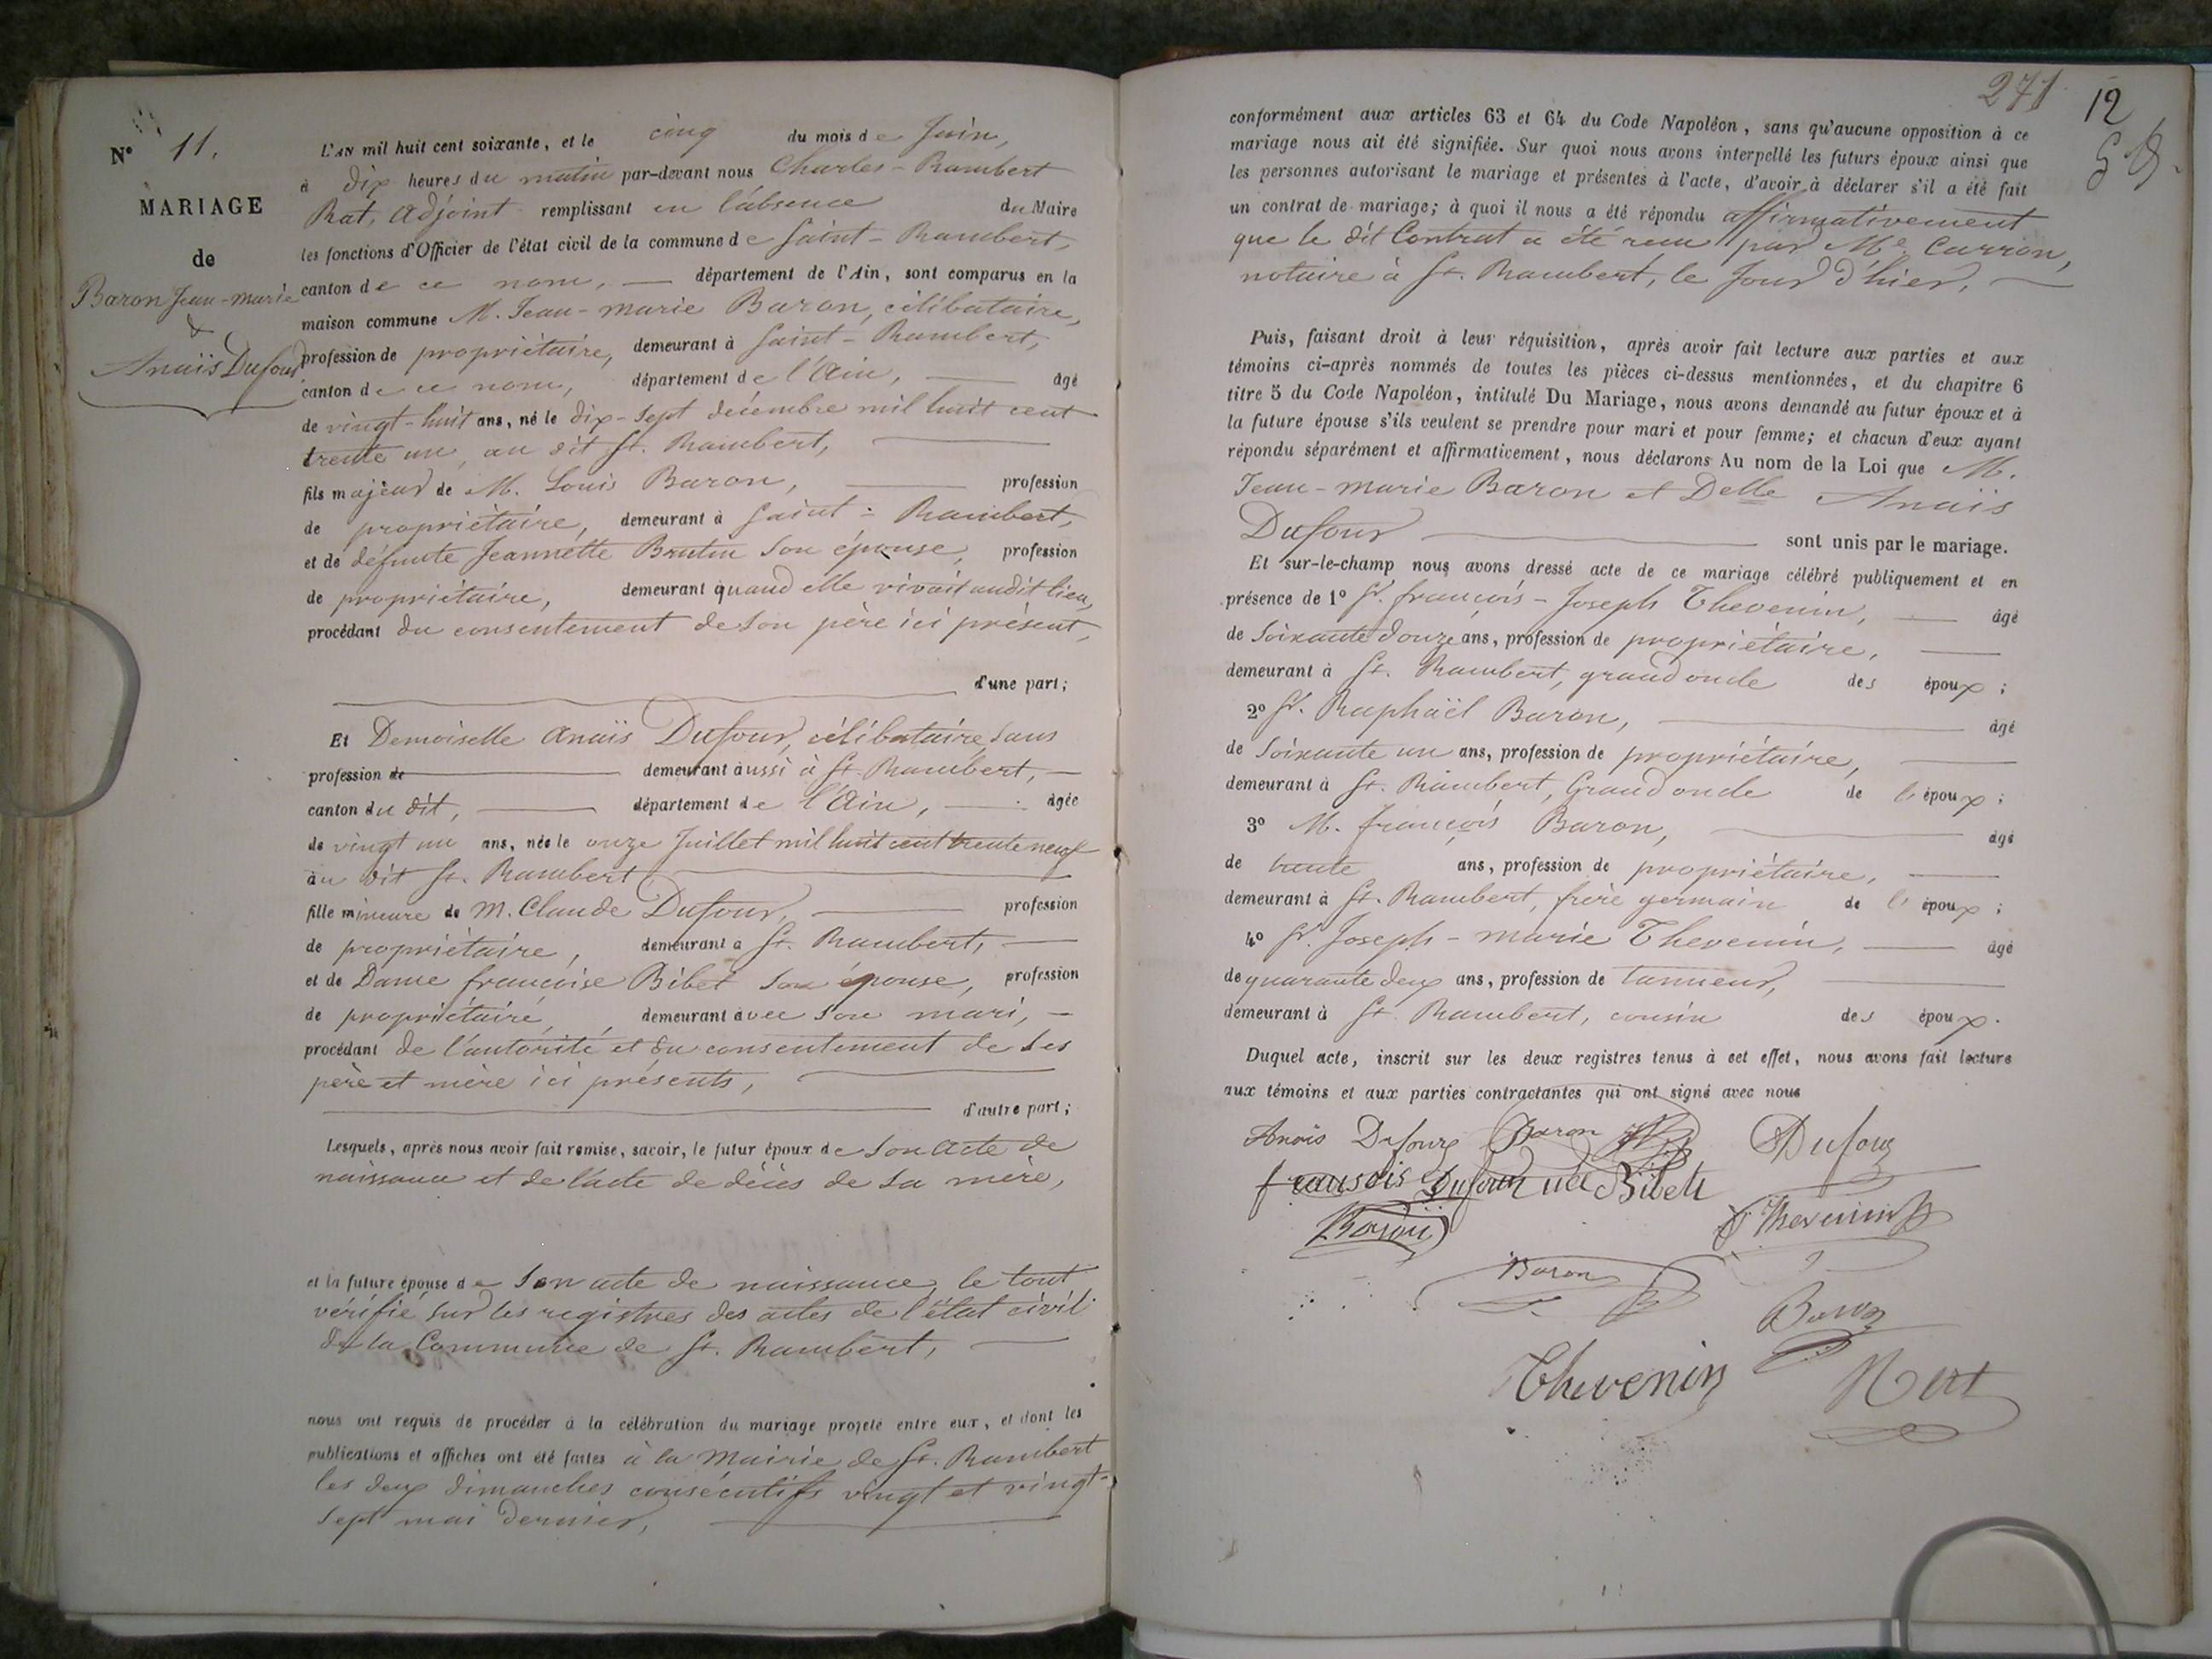 N° 11.
MARIAGE
de
Baron Jean-marie
&
Anaïs Dufour
L'AN mil huit cent soixante, et le cinq du mois de Juin,
à dix heures du matin par-devant nous Charles-Rambert
Rat, Adjoint remplissant en l'absence du Maire
les fonctions d'Officier de l'état civil de la commune de Saint-Rambert,
canton de ce nom, département de l'Ain, sont comparus en la
maison commune M. Jean-marie Baron, célibataire,
profession de propriétaire, demeurant à Saint-Rambert,
canton de ce nom, département de l'Ain, âgé
de vingt-huit ans, né le dix-sept décembre mil huit cent
trente un, au dit St. Rambert,
fils majeur de M. Louis Baron, profession
de propriétaire, demeurant à Saint-Rambert,
et de défunte Jeannette son épouse, profession
de propriétaire, demeurant quand elle vivait audit lieu,
procédant du consentement de son père ici présent,
d'une part;
Et Demoiselle Anaïs Dufour, célibataire, sans
profession de demeurant aussi à St. Rambert,
canton du dit, département de l'Ain, âgée
de vingt un ans, née le onze Juillet mil huit cent trente neuf
au dit St. Rambert
fille mineure de M. Claude Dufour, profession
de propriétaire, demeurant à St. Rambert,
et de Dame françoise Bibet son épouse, profession
de propriétaire, demeurant avec son mari,
procédant de l'autorité et du consentement de ses
père et mère ici présents,
d'autre part;
Lesquels, après nous avoir fait remise, savoir, le futur époux de son acte de
naissance et de l'acte de décès de sa mère,
et la future épouse de son acte de naissance, le tout
vérifié sur les registres des actes de l'état civil
de la Commune de St. Rambert,
nous ont requis de procéder à la célébration du mariage projeté entre eux, et dont les
publications et affiches ont été faites à la Mairie de St. Rambert
les deux dimanches consécutifs vingt et vingt-
sept mai dernier,
271
12
conformément aux articles 63 et 64 du Code Napoléon, sans qu'aucune opposition à ce
mariage nous ait été signifiée. Sur quoi nous avons interpellé les futurs époux ainsi que
les personnes autorisant le mariage et présentes à l'acte, d'avoir à déclarer s'il a été fait
un contrat de mariage; à quoi il nous a été répondu affirmativement
que le dit Contrat a été reçu par Me Carron,
notaire à St. Rambert, le jour d'hier,
Puis, faisant droit à leur réquisition, après avoir fait lecture aux parties et aux
témoins ci-après nommés de toutes les pièces ci-dessus mentionnées, et du chapitre 6
titre 5 du Code Napoléon, intitulé Du Mariage, nous avons demandé au futur époux et à
la future épouse s'ils veulent se prendre pour mari et pour femme; et chacun d'eux ayant
répondu séparément et affirmativement, nous déclarons Au nom de la Loi que M.
Jean-marie Baron et Delle Anaïs
Dufour sont unis par le mariage.
Et sur-le-champ nous avons dressé acte de ce mariage célébré publiquement et en
présence de 1° Sr. françois-Joseph Thevenin, âgé
de soixante douze ans, profession de propriétaire,
demeurant à St. Rambert, grand oncle des époux;
2° Sr. Raphaël Baron, âgé
de soixante un ans, profession de propriétaire,
demeurant à St. Rambert, Grand oncle de l'époux;
3° M. françois Baron, âgé
de trente ans, profession de propriétaire,
demeurant à St. Rambert, frère germain de l'époux;
4° Sr. Joseph-marie Thevenin, âgé
de quarante deux ans, profession de tanneur,
demeurant à St. Rambert, cousin des époux.
Duquel acte, inscrit sur les deux registres tenus à cet effet, nous avons fait lecture
aux témoins et aux parties contractantes qui ont signé avec nous
Anaïs Dufour Baron Dufour
Dufour née Bibet
Thevenin
Baron
Baron
Thevenin Rat